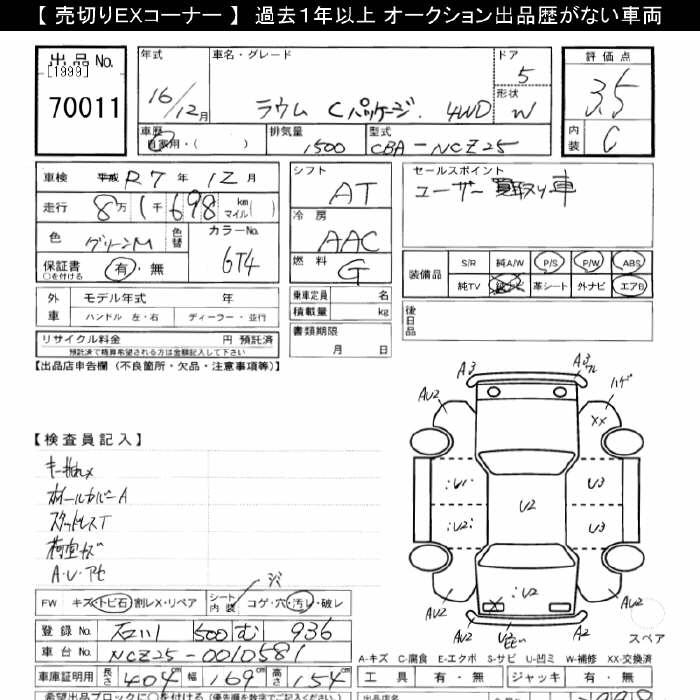 【 売切りEXコーナー 】 過去1年以上 オークション出品歴がない車両
出品 No.
[1999]
70011
年式
16/12月
車名・グレード
ラウム Cパッケージ. 4WD
ドア
5
形状
W
評価点
3.5
内装
C
車歴
自家用・( )
排気量
1500
型式
CBA-NCZ25
車検 平成 R7 年 12 月
走行 8万1千698 km マイル( )
色 グリーンM
色替
カラーNo.
6T4
保証書 有・無
○を付ける
外車
モデル年式 年
ハンドル 左・右 ディーラー・並行
リサイクル料金 円 預託済
預託済で精算希望される方は金額記入して下さい
シフト
AT
冷房
AAC
燃料
G
乗車定員 名
積載量 kg
書類期限
月 日
セールスポイント
ユーザー買取り車
装備品
S/R 純A/W P/S P/W ABS
純TV 革シート 外ナビ エアB
後日品
【出品店申告欄 (不良箇所・欠品・注意事項等)】
【検査員記入】
ホイールカバーA
スタッドレスT
荷室キズ
A・U・アセ
A3
A3
AU2
ハゲ
AU2
XX
U1
U3
U2
U2
U3
U2
X
AU2
AU2
U2
A2
スペア
FW キズ・トビ石・割レX・リペア
シート内装 コゲ・穴・汚レ・破レ
登録 No. 石川 500 む 936
車台 No. NCZ25-0010581
車庫証明用 長さ 404 cm 幅 169 cm 高さ 154 cm
希望出品ブロックに○を付ける(優先順を数字でご記入ください)
A-キズ C-腐食 E-エクボ S-サビ U-凹ミ W-補修 XX-交換済
工具 有・無 ジャッキ 有・無